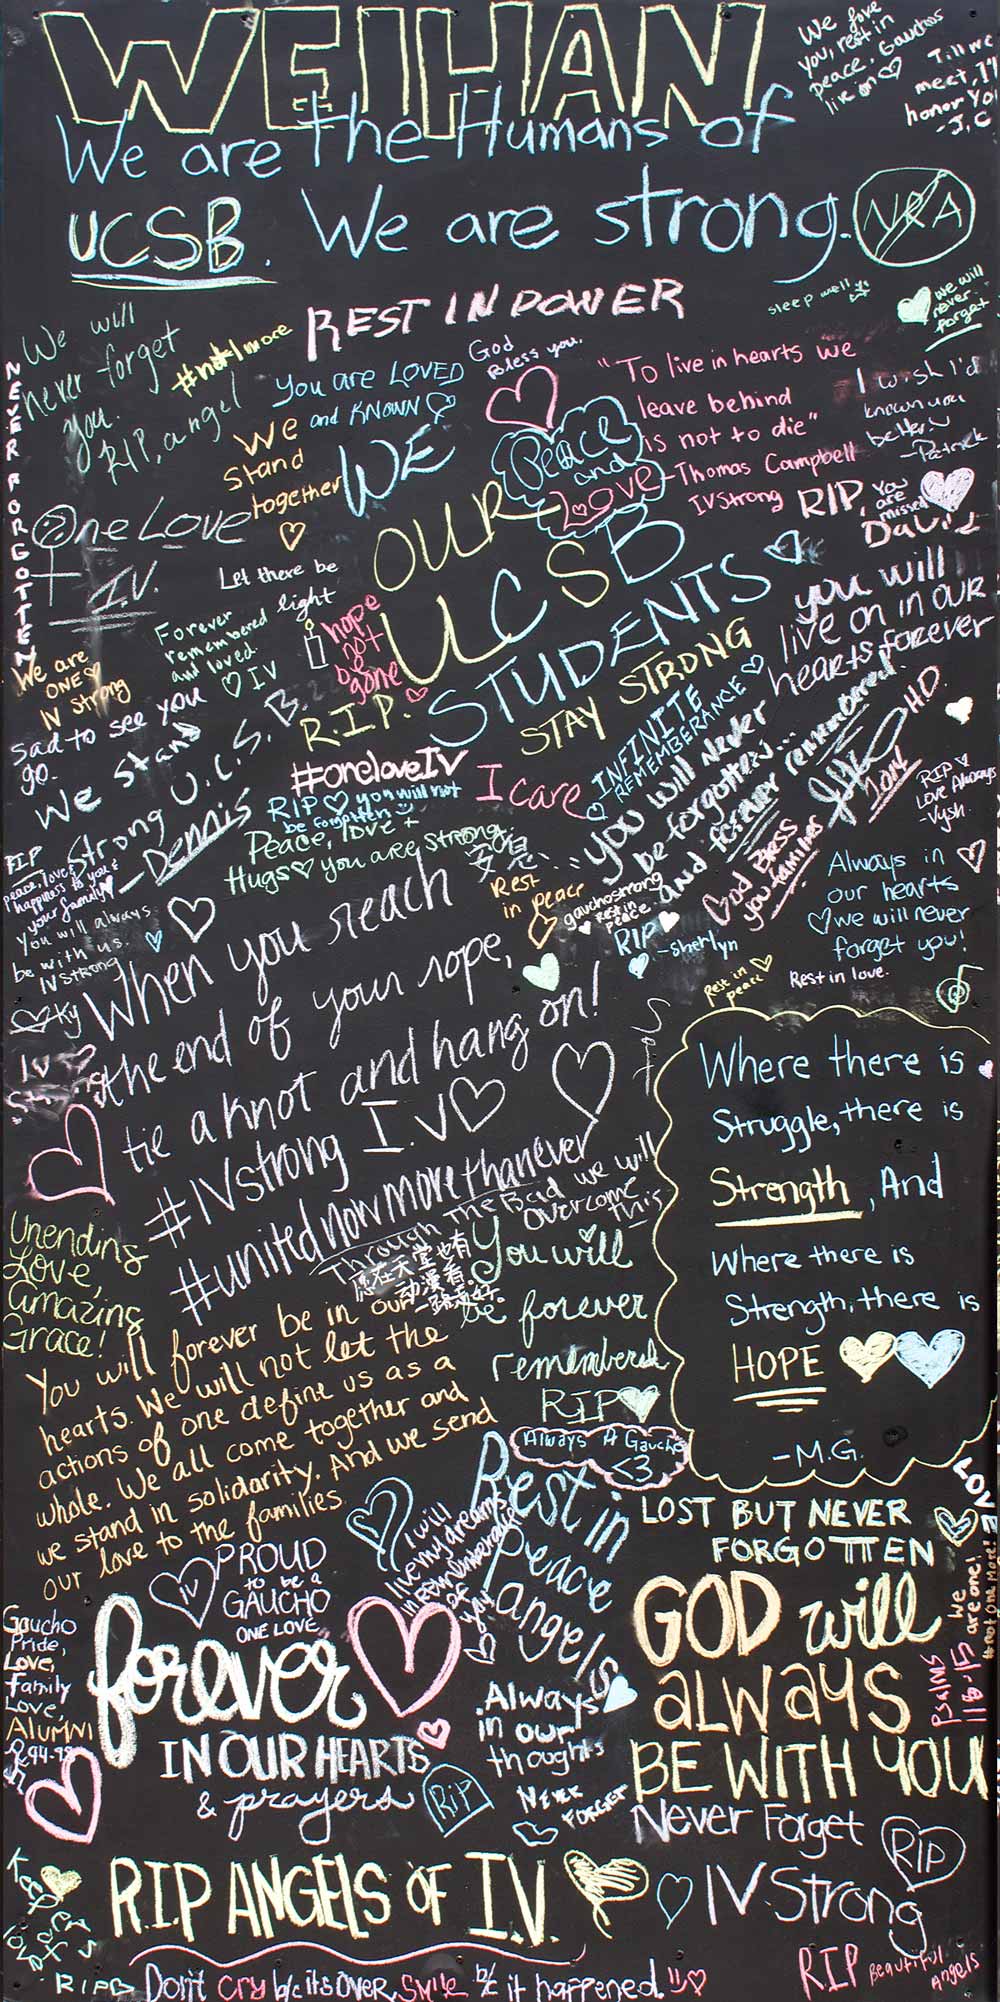 WEIHAN
We love
you, rest in
peace. Gauchos
live on
Till we
meet, I'll
honor You
- J, C
We are the Humans of
UCSB. We are strong.
NRA
REST IN POWER
sleep well
we will
never
forget
We will
never forget
you.
RIP, angel
#not1more
NEVER FORGOTTEN
You are LOVED
and KNOWN
God
Bless you.
"To live in hearts we
leave behind
is not to die"
-Thomas Campbell
IVStrong
I wish I'd
known you
better
-Patrick
We
Stand
together
Peace
and
Love
WE
OUR
UCSB
STUDENTS
RIP,
You
are
missed
David
One Love
I.V.
Let there be
light
Forever
remembered
and loved.
IV
hope
not
be
gone
you will
live on in our
hearts forever
We are
ONE
IV Strong
R.I.P.
STAY STRONG
INFINITE
REMEMBERANCE
sad to see you
go.
We stand
U.C.S.B.
Strong
- Dennis
#oneloveIV
I care
RIP you will not
be forgotten
Peace, love +
Hugs you are strong
安息
Rest
in peace
you will never
be forgotten...
and forever remembered.
H.D.
God Bless
you families
RIP
Love Always
-Vysh
RIP
peace, love &
happiness to you &
your family
You will always
be with us.
IV Strong
Ky
gauchostrong
Rest in
peace
RIP
-sherlyn
Always in
our hearts
we will never
forget you!
Rest in
peace
Rest in love.
When you reach
the end of your rope,
tie a knot and hang on!
#IVstrong I.V
#unitednowmorethanever
Through the Bad we will
overcome
this
愿在天堂也有
动漫看
一路走好
Where there is
Struggle, there is
Strength, And
Where there is
Strength, there is
HOPE
-M.G.
Unending
Love,
Amazing
Grace!
You will
be forever
remembered
RIP
You will forever be in our
hearts. We will not let the
actions of one define us as a
whole. We all come together and
we stand in solidarity. And we send
our love to the families.
Always A Gaucho
<3
Rest in
Peace
angels
I will
live my dreams
in remembrance
of
you
LOST BUT NEVER
FORGOTTEN
LOVE
We
are one!
#Not One More!
IV
PROUD
to be a
GAUCHO
ONE LOVE
Gaucho
Pride,
Love,
Family
Love,
ALUMNI
forever
IN OUR HEARTS
& prayers
RIP
Always
in our
thoughts
NEVER
FORGET
GOD will
ALWAYS
BE WITH YOU
Psalms
116:15
Never Forget
RIP
R.I.P ANGELS OF I.V.
IV Strong
RIP
Don't Cry b/c its OVER, Smile b/c it happened!!
RIP Beautiful
Angels